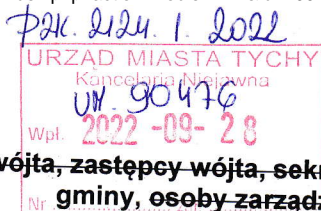 PZK. 2124. 1. 2022
URZĄD MIASTA TYCHY
Kancelaria Niejawna
UM. 90476
Wpł. 2022 -09- 28
wójta, zastępcy wójta, sek
gminy, osoby zarządz
Nr